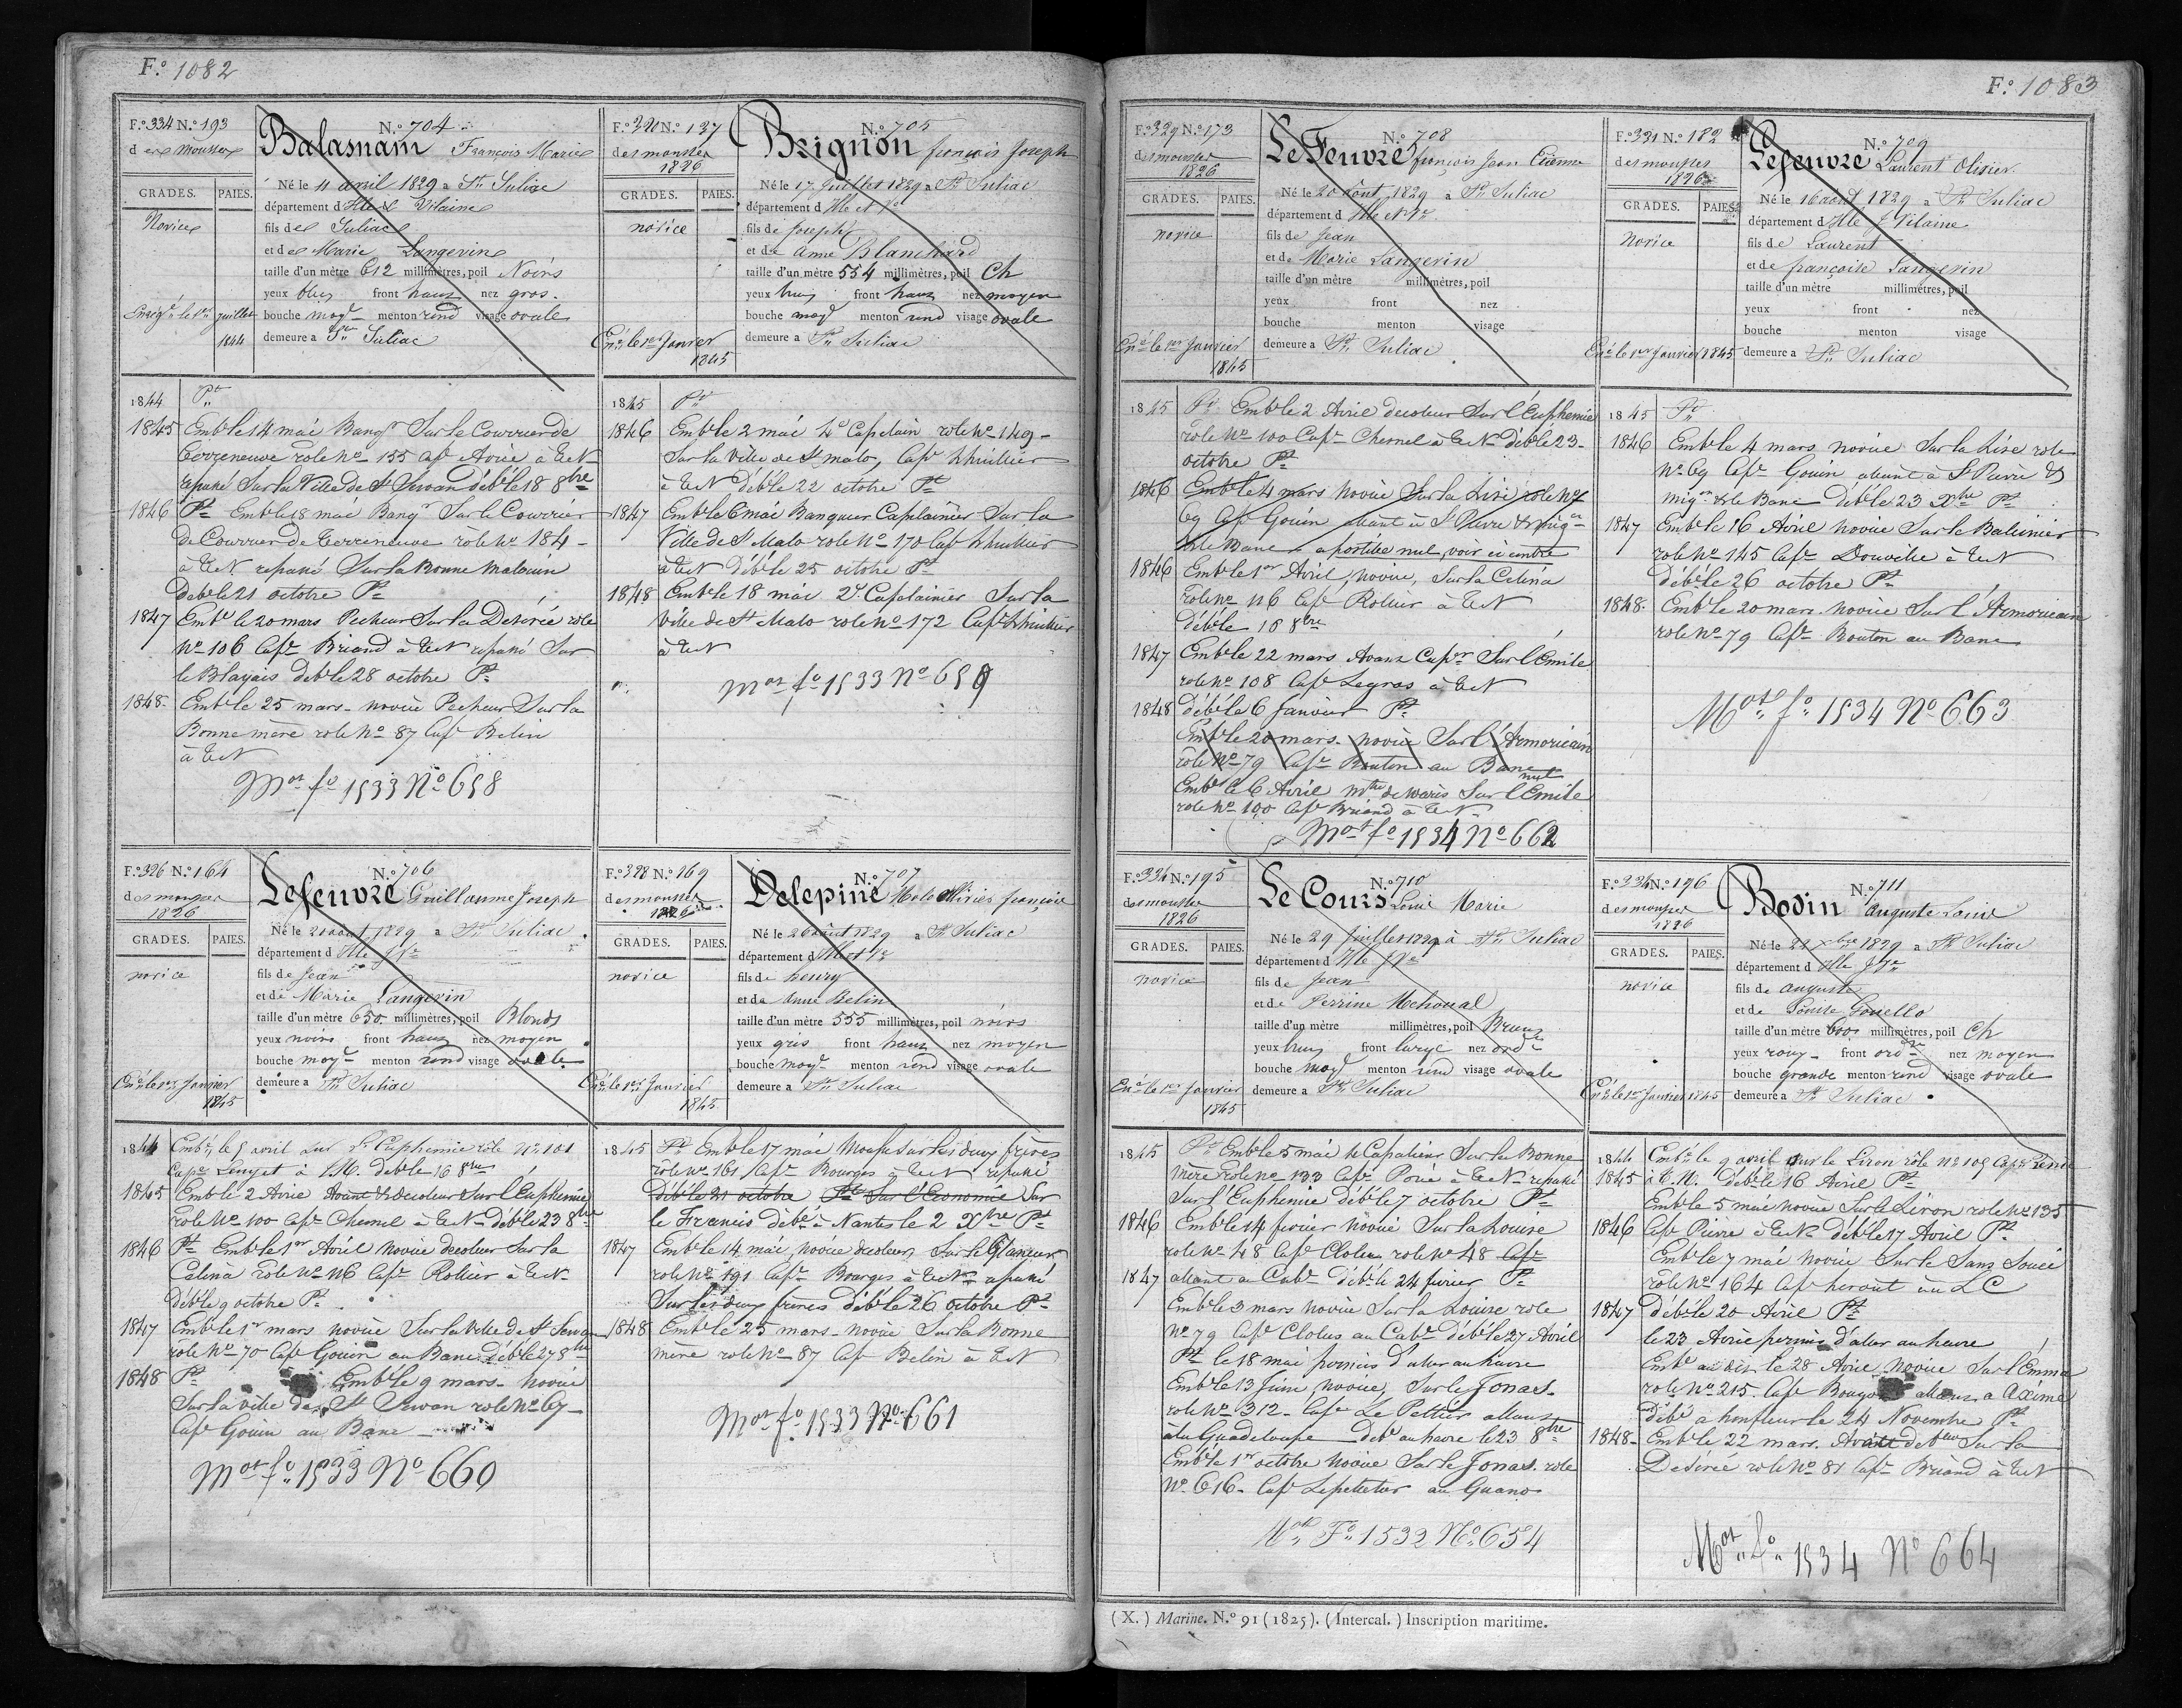 F.º 1082
F.º 334 N.º 193
des mousses
N.º 704
Balasnam François Marie
GRADES. PAIES.
Novice
Né le 11 avril 1829 a St Suliac
département d'Ille et Vilaine
fils de Suliac
et de Marie Langevin
taille d'un mètre 612 millimètres, poil Noirs
yeux bleus front haut nez gros
bouche moye menton rond visage ovale
demeure a St Suliac
juillet
1844
1844 Pt
1845 Emb le 14 mai Banqr Sur le Courrier de
Terreneuve role No 155 Cap Avice à TN
repassé Sur la Ville de St Servan déb le 18 8bre
1846 Pt Emb le 18 mai Banqr Sur le Courrier
de Courrier de Terreneuve role No 184
à TN repassé Sur la Bonne Malouin
Deb le 21 octobre Pt
1847 Emb le 20 mars Pecheur Sur la Desirée role
No 106 Cap Briand à TN repassé Sur
le Blayais deb le 28 octobre Pt
1848 Emb le 25 mars novice Pecheur Sur la
Bonne mère role No 87 Cap Belin
à TN
Mot fo 1533 No 658
F.º 320 N.º 137
des mousses
1826
N.º 705
Brignon françois Joseph
GRADES. PAIES.
novice
Né le 17 Juillet 1829 a St Suliac
département d Ille et Ve
fils de Joseph
et de Anne Blanchard
taille d'un mètre 554 millimètres, poil Ch
yeux front haut nez moyen
bouche moye menton rond visage ovale
demeure a St Suliac
le 1er Janvier
1845
1845 Pt
1846 Emb le 2 mai 4e Caplain role No 149
Sur la Ville de St malo, Cap Lhuillier
à TN déb le 22 octobre Pt
1847 Emb le 6 mai Banquier Caplainier Sur la
Ville de St Malo role No 170 Cap Lhuillier
à TN Déb le 25 octobre Pt
1848 Emb le 18 mai 2e Caplainier Sur la
Ville de St Malo role No 172 Cap Lhuillier
à TN
Mot fo 1533 No 659
F.º 326 N.º 164
des mousses
1826
N.º 706
Lefeuvre Guillaume Joseph
GRADES. PAIES.
novice
Né le 20 aout 1829 a St Suliac
département d Ille & Ve
fils de Jean
et de Marie Langevin
taille d'un mètre 650 millimètres, poil Blonds
yeux noirs front haut nez moyen
bouche moye menton rond visage ovale
demeure a St Suliac
le 1er Janvier
1845
1844 Emb le 5 avril sur l'Euphemie role No 101
Cape Lenget à deb le 16 8bre
1845 Emb le 2 Avril Avant & decoleur Sur l'Euphemie
role No 100 Cap Chesnel à TN déb le 23 8bre
1846 Pt Emb le 1er Avril novice decoleur Sur la
Celina role No 116 Cap Rollier à TN
Déb le 9 octobre Pt
1847 Emb le 1er mars novice Sur la Ville de St Servan
role No 70 Cap Gouin au Banc Déb le 27 8bre
1848 Pt Emb le 9 mars novice
Sur la ville de St Servan role No 67
Cap Gouin au Banc
Mot fo 1533 No 660
F.º 328 N.º 169
des mousses
1826
N.º 707
Delepine Malo Olivier françois
GRADES. PAIES.
novice
Né le 26 aout 1829 a St Suliac
département d Ille et Ve
fils de henry
et de Anne Belin
taille d'un mètre 555 millimètres, poil noirs
yeux gris front haut nez moyen
bouche moye menton rond visage ovale
demeure a St Suliac
le 1er Janvier
1845
1845 Pt Emb le 17 mai Mousse Sur les deux frères
role No 161 Cap Bourges à TN repassé
Déb le 21 octobre Pt Sur l'Economie Sur
le Francis débé à Nantes le 2 Xbre Pt
1847 Emb le 14 mai novice decoleur Sur le Glaneur
role No 191 Cap Bourges à TN repassé
Sur les deux frères Déb le 26 octobre Pt
1848 Emb le 25 mars novice Sur la Bonne
mère role No 87 Cap Belin à TN
Mot fo 1533 No 661
F.º 1083
F.º 329 N.º 173
des mousses
1826
N.º 708
Le Feuvre françois Jean Etienne
GRADES. PAIES.
novice
Né le 20 Aout 1829 a St Suliac
département d Ille & Ve
fils de Jean
et de Marie Langevin
taille d'un mètre millimètres, poil
yeux front nez
bouche menton visage
demeure a St Suliac
le 1er Janvier
1845
1845 Pt Emb le 2 Avril decoleur Sur l'Euphemie
role No 100 Cap Chesnel à TN déb le 23
octobre Pt
1846 Emb le 4 mars novice Sur la Lise role No
69 Cap Gouin allant à St Pierre & miqon
& le Banc apostille nul, voir ci contre
1846 Emb le 1er Avril, novice, Sur la Celina
role No 116 Cap Rollier à TN
Déb le 18 8bre
1847 Emb le 22 mars Avant Capr Sur l'Emile
role No 108 Cap Legros à TN
1848 déb le 6 Janvier Pt
Emb le 20 mars novice Sur l'Armoricain
role No 79 Cap Bouton au Banc nul
Emb le 6 Avril mtre de marie Sur l'Emile
role No 100 Cap Briand à TN
Mot fo 1534 No 662
F.º 331 N.º 182
des mousses
1826
N.º 709
Lefeuvre Laurent Olivier
GRADES. PAIES.
novice
Né le 16 aout 1829 a St Suliac
département d Ille & Vilaine
fils de Laurent
et de françoise Langevin
taille d'un mètre millimètres, poil
yeux front nez
bouche menton visage
demeure a St Suliac
le 1er Janvier 1845
1845 Pt
1846 Emb le 4 mars novice Sur la Lise role
No 69 Cap Gouin allant à St Pierre &
miqon & le Banc Déb le 23 Xbre Pt
1847 Emb le 16 Avril novice Sur le Baleinier
role No 145 Cap Douville à TN
Déb le 26 octobre Pt
1848 Emb le 20 mars novice Sur l'Armoricain
role No 79 Cap Bouton au Banc
Mot fo 1534 No 663
F.º 334 N.º 195
des mousses
1826
N.º 710
Le Cours Louis Marie
GRADES. PAIES.
novice
Né le 29 Juillet 1829 à St Suliac
département d Ille & Ve
fils de Jean
et de Perrine Mehoual
taille d'un mètre millimètres, poil Bruns
yeux front large nez orde
bouche moye menton rond visage ovale
demeure a St Suliac
le 1er Janvier
1845
1845 Pt Emb le 5 mai Sur la Bonne
mère role No 133 Cap à TN repassé
Sur l'Euphemie Déb le 7 octobre Pt
1846 Emb le 14 fevrier novice Sur la Louise
role No 48 Cap Clolus role No 48 Cap
1847 allant au Cabe Déb le 24 fevrier Pt
Emb le 3 mars novice Sur la Louise role
No 79 Cap Clolus au Cabe Déb le 27 Avril
Pt le 18 mai permis d'aller au havre
Emb le 13 Juin, novice, Sur le Jonas
role No 312 Cap Le Pettier allant
à la Guadeloupe deb au havre le 23 8bre
Emb le 1er octobre novice Sur le Jonas role
No 616 Cap Lepelletier au Guano
Mot Fo 1532 No 654
F.º 334 N.º 196
des mousses
1826
N.º 711
Bodin Auguste Louis
GRADES. PAIES.
novice
Né le 21 Xbre 1829 a St Suliac
département d Ille & Ve
fils de Auguste
et de Louise Gouello
taille d'un mètre 600 millimètres, poil Ch
yeux roux front ordre nez moyen
bouche grande menton rond visage ovale
demeure a St Suliac
le 1er Janvier 1845
1844 Emb le 9 avril sur le Liron role No 109 Cap
1845 à T.N. Déb le 16 Avril Pt
Emb le 5 mai novice Sur le Liron role No 135
1846 Cap Pierre à TN déb le 17 Avril Pt
Emb le 7 mai novice Sur le Sans Souci
role No 164 Cap heront au LC
1847 déb le 20 Avril Pt
le 23 Avril permis d'aller au havre
Emb au dit le 28 Avril novice Sur l'Emma
role No 215 Cap allant a
Débé a honfleur le 24 Novembre Pt
1848 Emb le 22 mars Avant Sur la
Desirée role No 81 Cap Briand à TN
Mot fo 1534 No 664
(X.) Marine. N.º 91 (1825). (Intercal.) Inscription maritime.